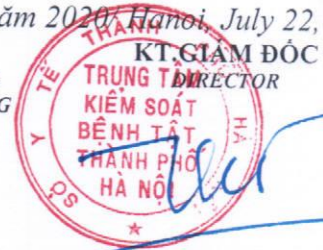 ăm 2020/ Hanoi, July 22,
KT.GIÁM ĐỐC
DIRECTOR
G
SỞ Y TẾ THÀNH HÀ
TRUNG TÂM
KIỂM SOÁT
BỆNH TẬT
THÀNH PHỐ
HÀ NỘI